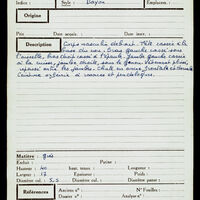 Indice : Style : Bayon Emplacem. :
Prix Date acquis. : Date inv. :
Description Corps masculin debout. Tête cassée à la
base du cou, bras gauche cassé sous
l'aisselle, bras droit cassé à l'épaule. Jambe gauche cassée
à la cuisse, jambe droite, sous le genou. Vêtement plissé,
repassé entre les jambes. Chute en ancre
Ceinture orfévrée à rosaces et pendeloques.
Matière : grès
Patine :
Hauteur : 40
Largeur : 17 Épaisseur :
Diamètre col. : 5,5 Diamètre :
Références Anciens nos : N° Fouilles :
Dossier nos : Analyse n° :